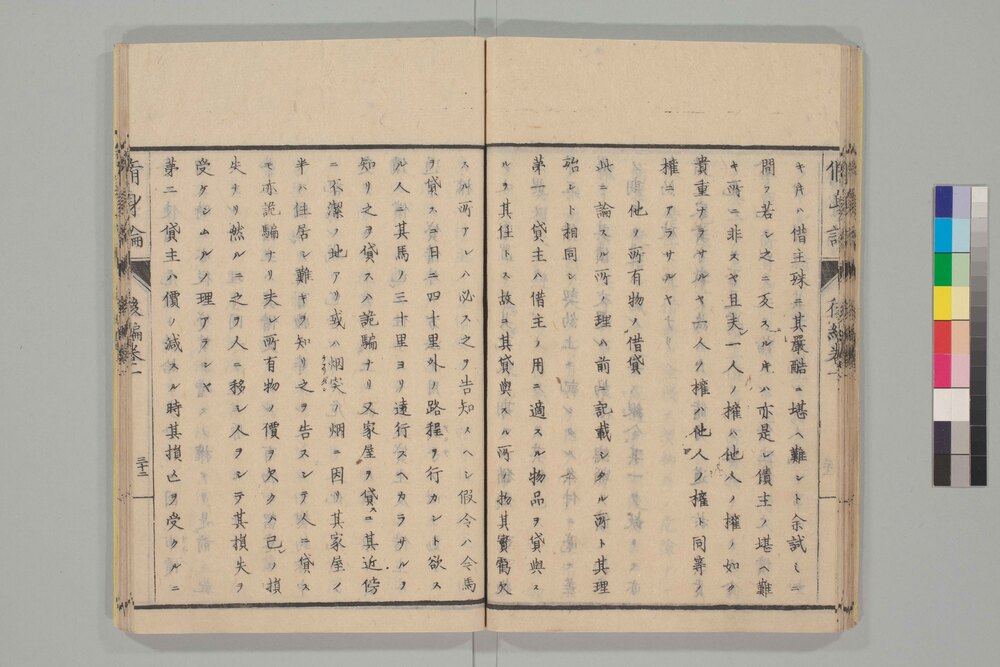 キ𪜈ハ借主殊ニ其嚴酷ニ堪ヘ難シト余試ミニ
問フ若シ之ニ反スル𪜈ハ亦是レ債主ノ堪ヘ難
キ所ニ非スヤ且夫レ一人ノ權ハ他人ノ權ノ如ク
貴重ナラサルヤ一人ノ權ハ他人ノ權ト同等ノ
權ニアラサルヤ
他ノ所有物ノ借貸
此ニ論スル所ノ理ハ前ニ記載シタル所ト其理
殆ント相同シ
第一貸主ハ借主ノ用ニ適スル物品ヲ貸與ス
ルヲ其任トス故ニ其貸與スル所ノ物其實霱欠
スル所アレハ必ス之ヲ告知スヘシ假令ハ今馬
ヲ貸スニ日ニ四十里外ノ路程ヲ行カント欲ス
ル人ニ其馬ノ三十里ヨリ遠行スヘカラサルヲ
知リ之ヲ貸スハ詭騙ナリ又家屋ヲ貸スニ其近傍
ニ不潔ノ地アリ或ハ烟突ノ烟ニ因リ其家屋ノ
半ハ住居シ難キヲ知リ之ヲ告スシテ人ニ貸ス
モ亦詭騙ナリ夫レ所有物ノ價ヲ欠クハ己レノ損
失ナリ然ルニ之ヲ人ニ移シ人ヲシテ其損失ヲ
受ケシムルノ理アランヤ
第二貸主ハ價ノ減スル時其損亡ヲ受クルニ
脩身論
後編卷二
三十二